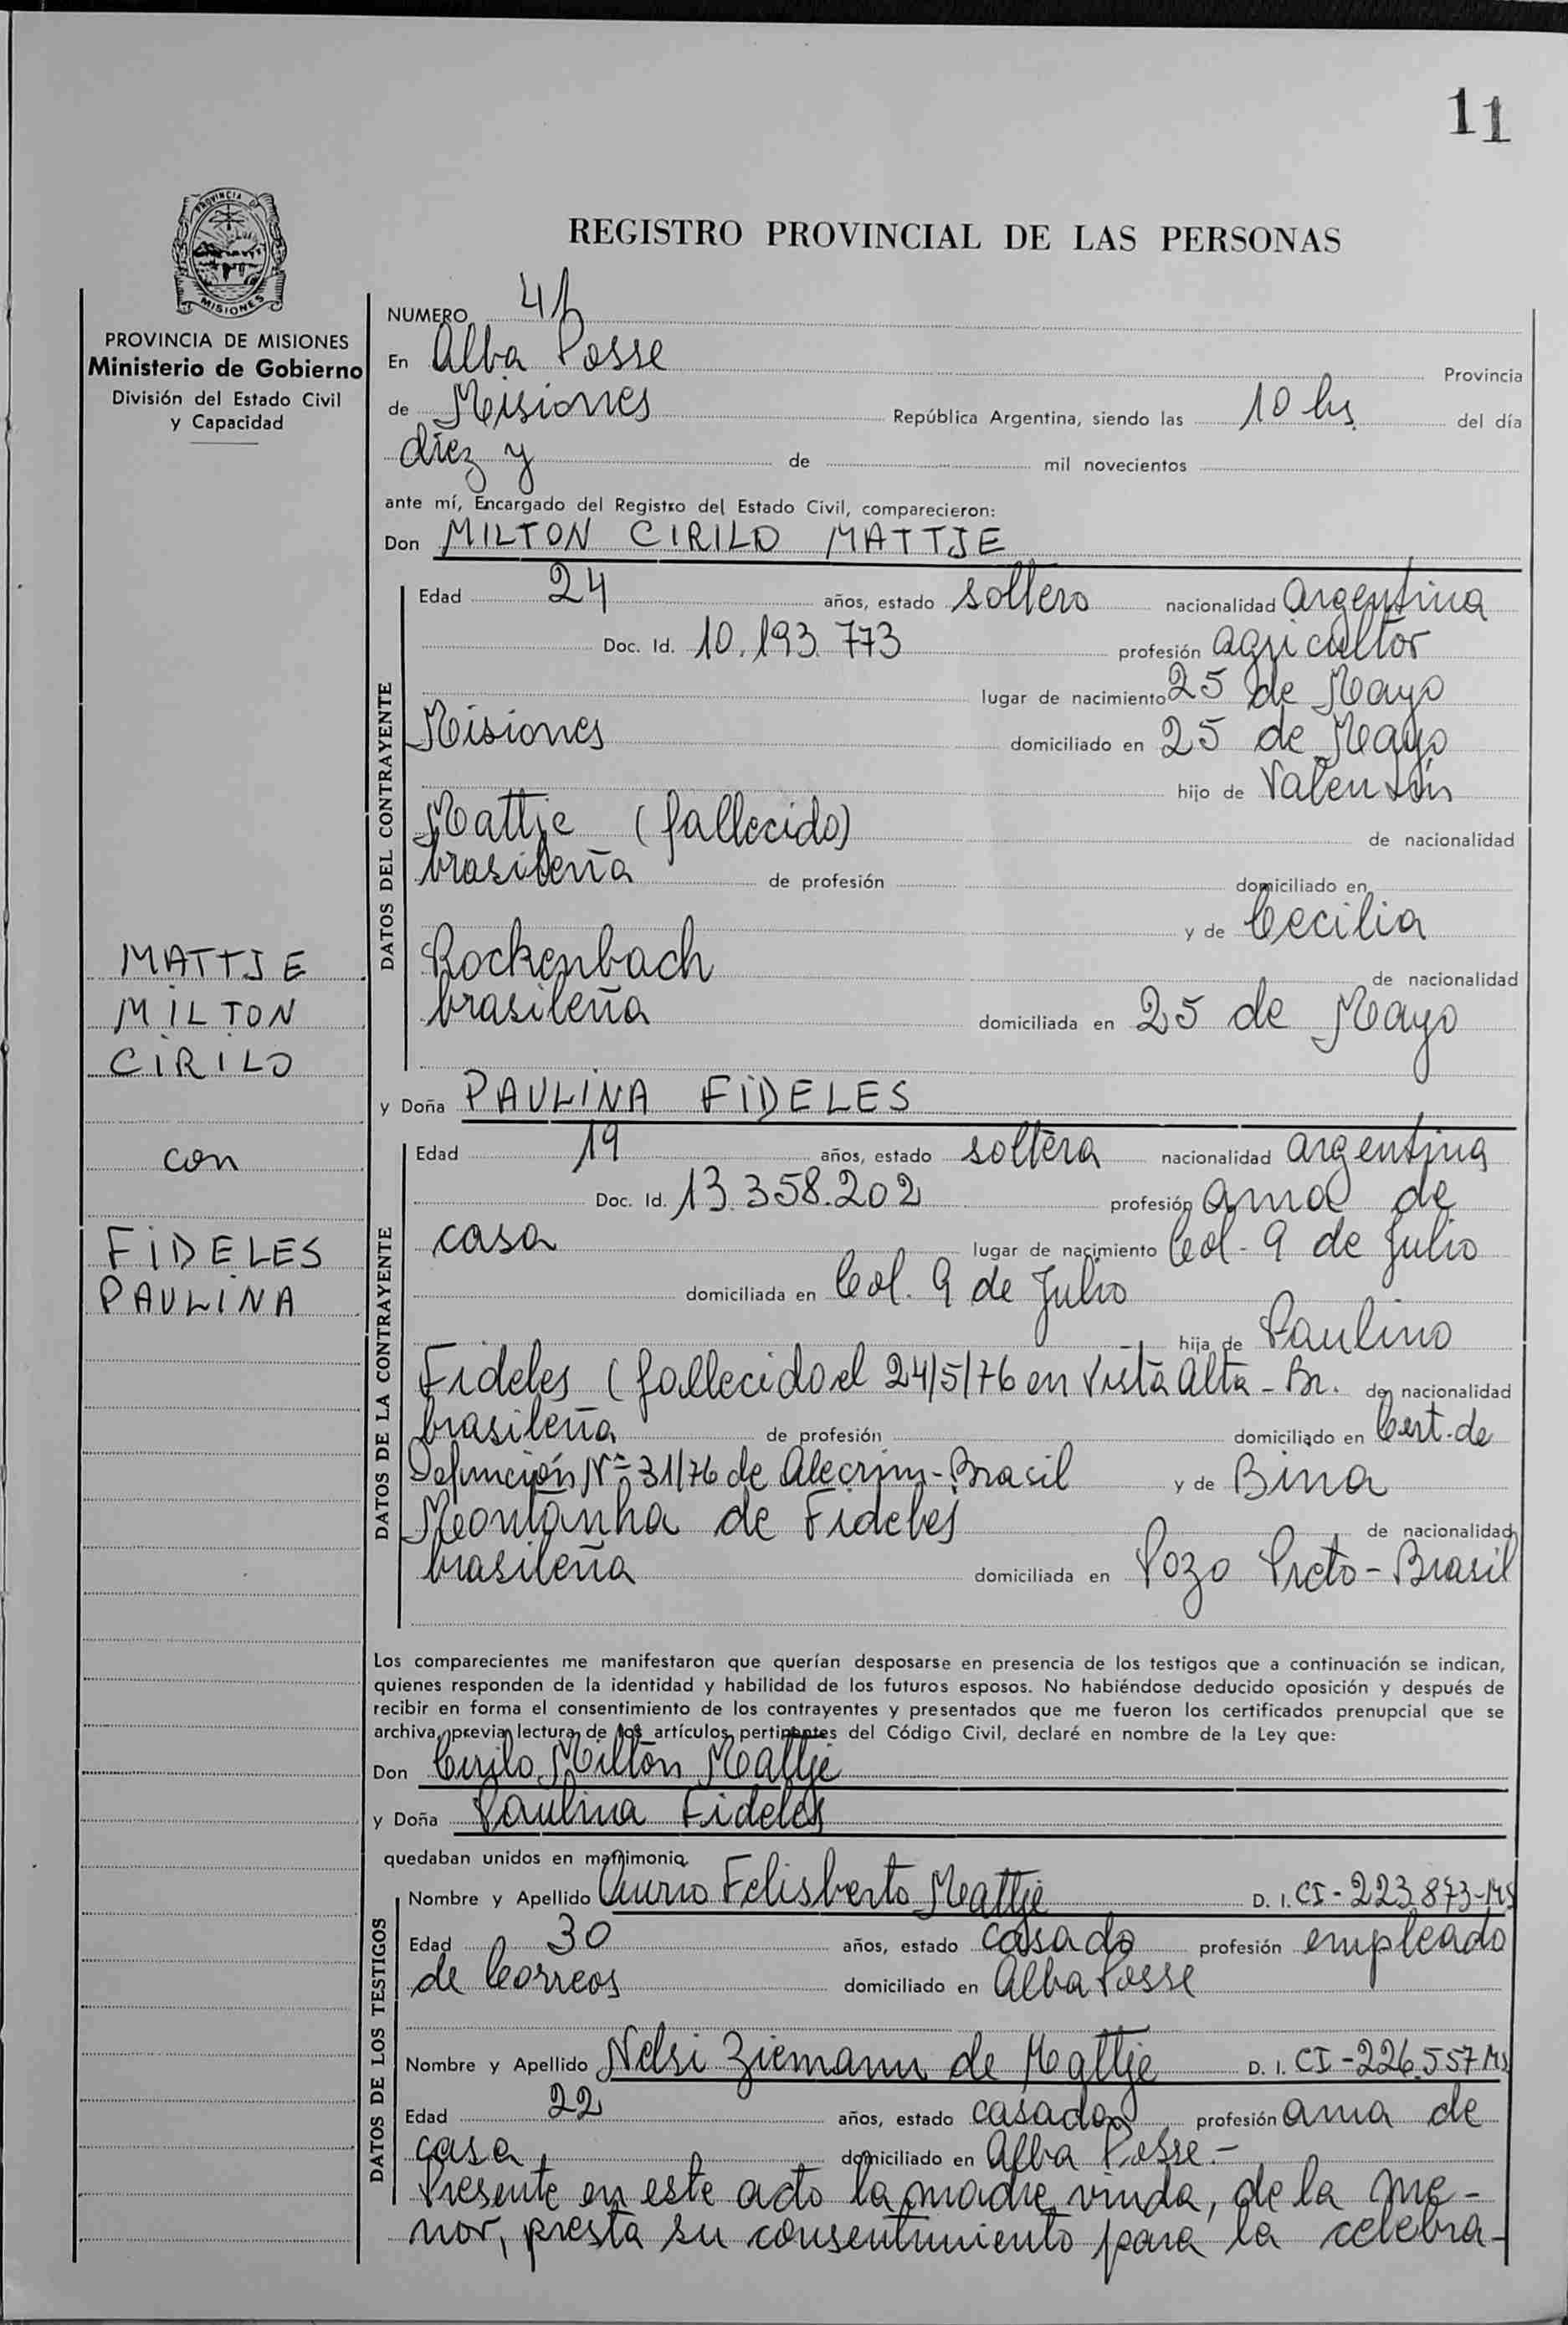 11
PROVINCIA DE
MISIONES
REGISTRO PROVINCIAL DE LAS PERSONAS
PROVINCIA DE MISIONES
Ministerio de Gobierno
División del Estado Civil
y Capacidad
MATTJE
MILTON
CIRILO
con
FIDELES
PAULINA
NUMERO
En Alba Posse Provincia
de Misiones República Argentina, siendo las 10 hs. del día
diez y de mil novecientos
ante mí, Encargado del Registro del Estado Civil, comparecieron:
Don MILTON CIRILO MATTJE
DATOS DEL CONTRAYENTE
Edad 24 años, estado soltero nacionalidad argentina
Doc. Id. 10.193.773 profesión agricultor
lugar de nacimiento 25 de Mayo
Misiones domiciliado en 25 de Mayo
hijo de Valentín
Mattje (fallecido) de nacionalidad
brasileña de profesión domiciliado en
y de Cecilia
Rockenbach de nacionalidad
brasileña domiciliada en 25 de Mayo
y Doña PAULINA FIDELES
DATOS DE LA CONTRAYENTE
Edad 19 años, estado soltera nacionalidad argentina
Doc. Id. 13.358.202 profesión ama de
casa lugar de nacimiento Col. 9 de Julio
domiciliada en Col. 9 de Julio
hija de Paulino
Fideles (fallecido el 24/5/76 en Vista Alta - Br. de nacionalidad
brasileña de profesión domiciliado en Cert. de
Defunción Nº 31/76 de Alecrim - Brasil y de Bina
Montanha de Fideles de nacionalidad
brasileña domiciliada en Pozo Preto - Brasil
Los comparecientes me manifestaron que querían desposarse en presencia de los testigos que a continuación se indican,
quienes responden de la identidad y habilidad de los futuros esposos. No habiéndose deducido oposición y después de
recibir en forma el consentimiento de los contrayentes y presentados que me fueron los certificados prenupcial que se
archiva, previa lectura de los artículos pertinentes del Código Civil, declaré en nombre de la Ley que:
Don Cirilo Milton Mattje
y Doña Paulina Fideles
quedaban unidos en matrimonio.
DATOS DE LOS TESTIGOS
Nombre y Apellido Felisberto Mattje D. I. CI - 223.873 - Ms
Edad 30 años, estado casado profesión empleado
de Correos domiciliado en Alba Posse
Nombre y Apellido Nelsi Ziemann de Mattje D. I. CI - 226.557 Ms
Edad 22 años, estado casada profesión ama de
casa domiciliado en Alba Posse.-
Presente en este acto la madre viuda, de la me-
nor, presta su consentimiento para la celebra-